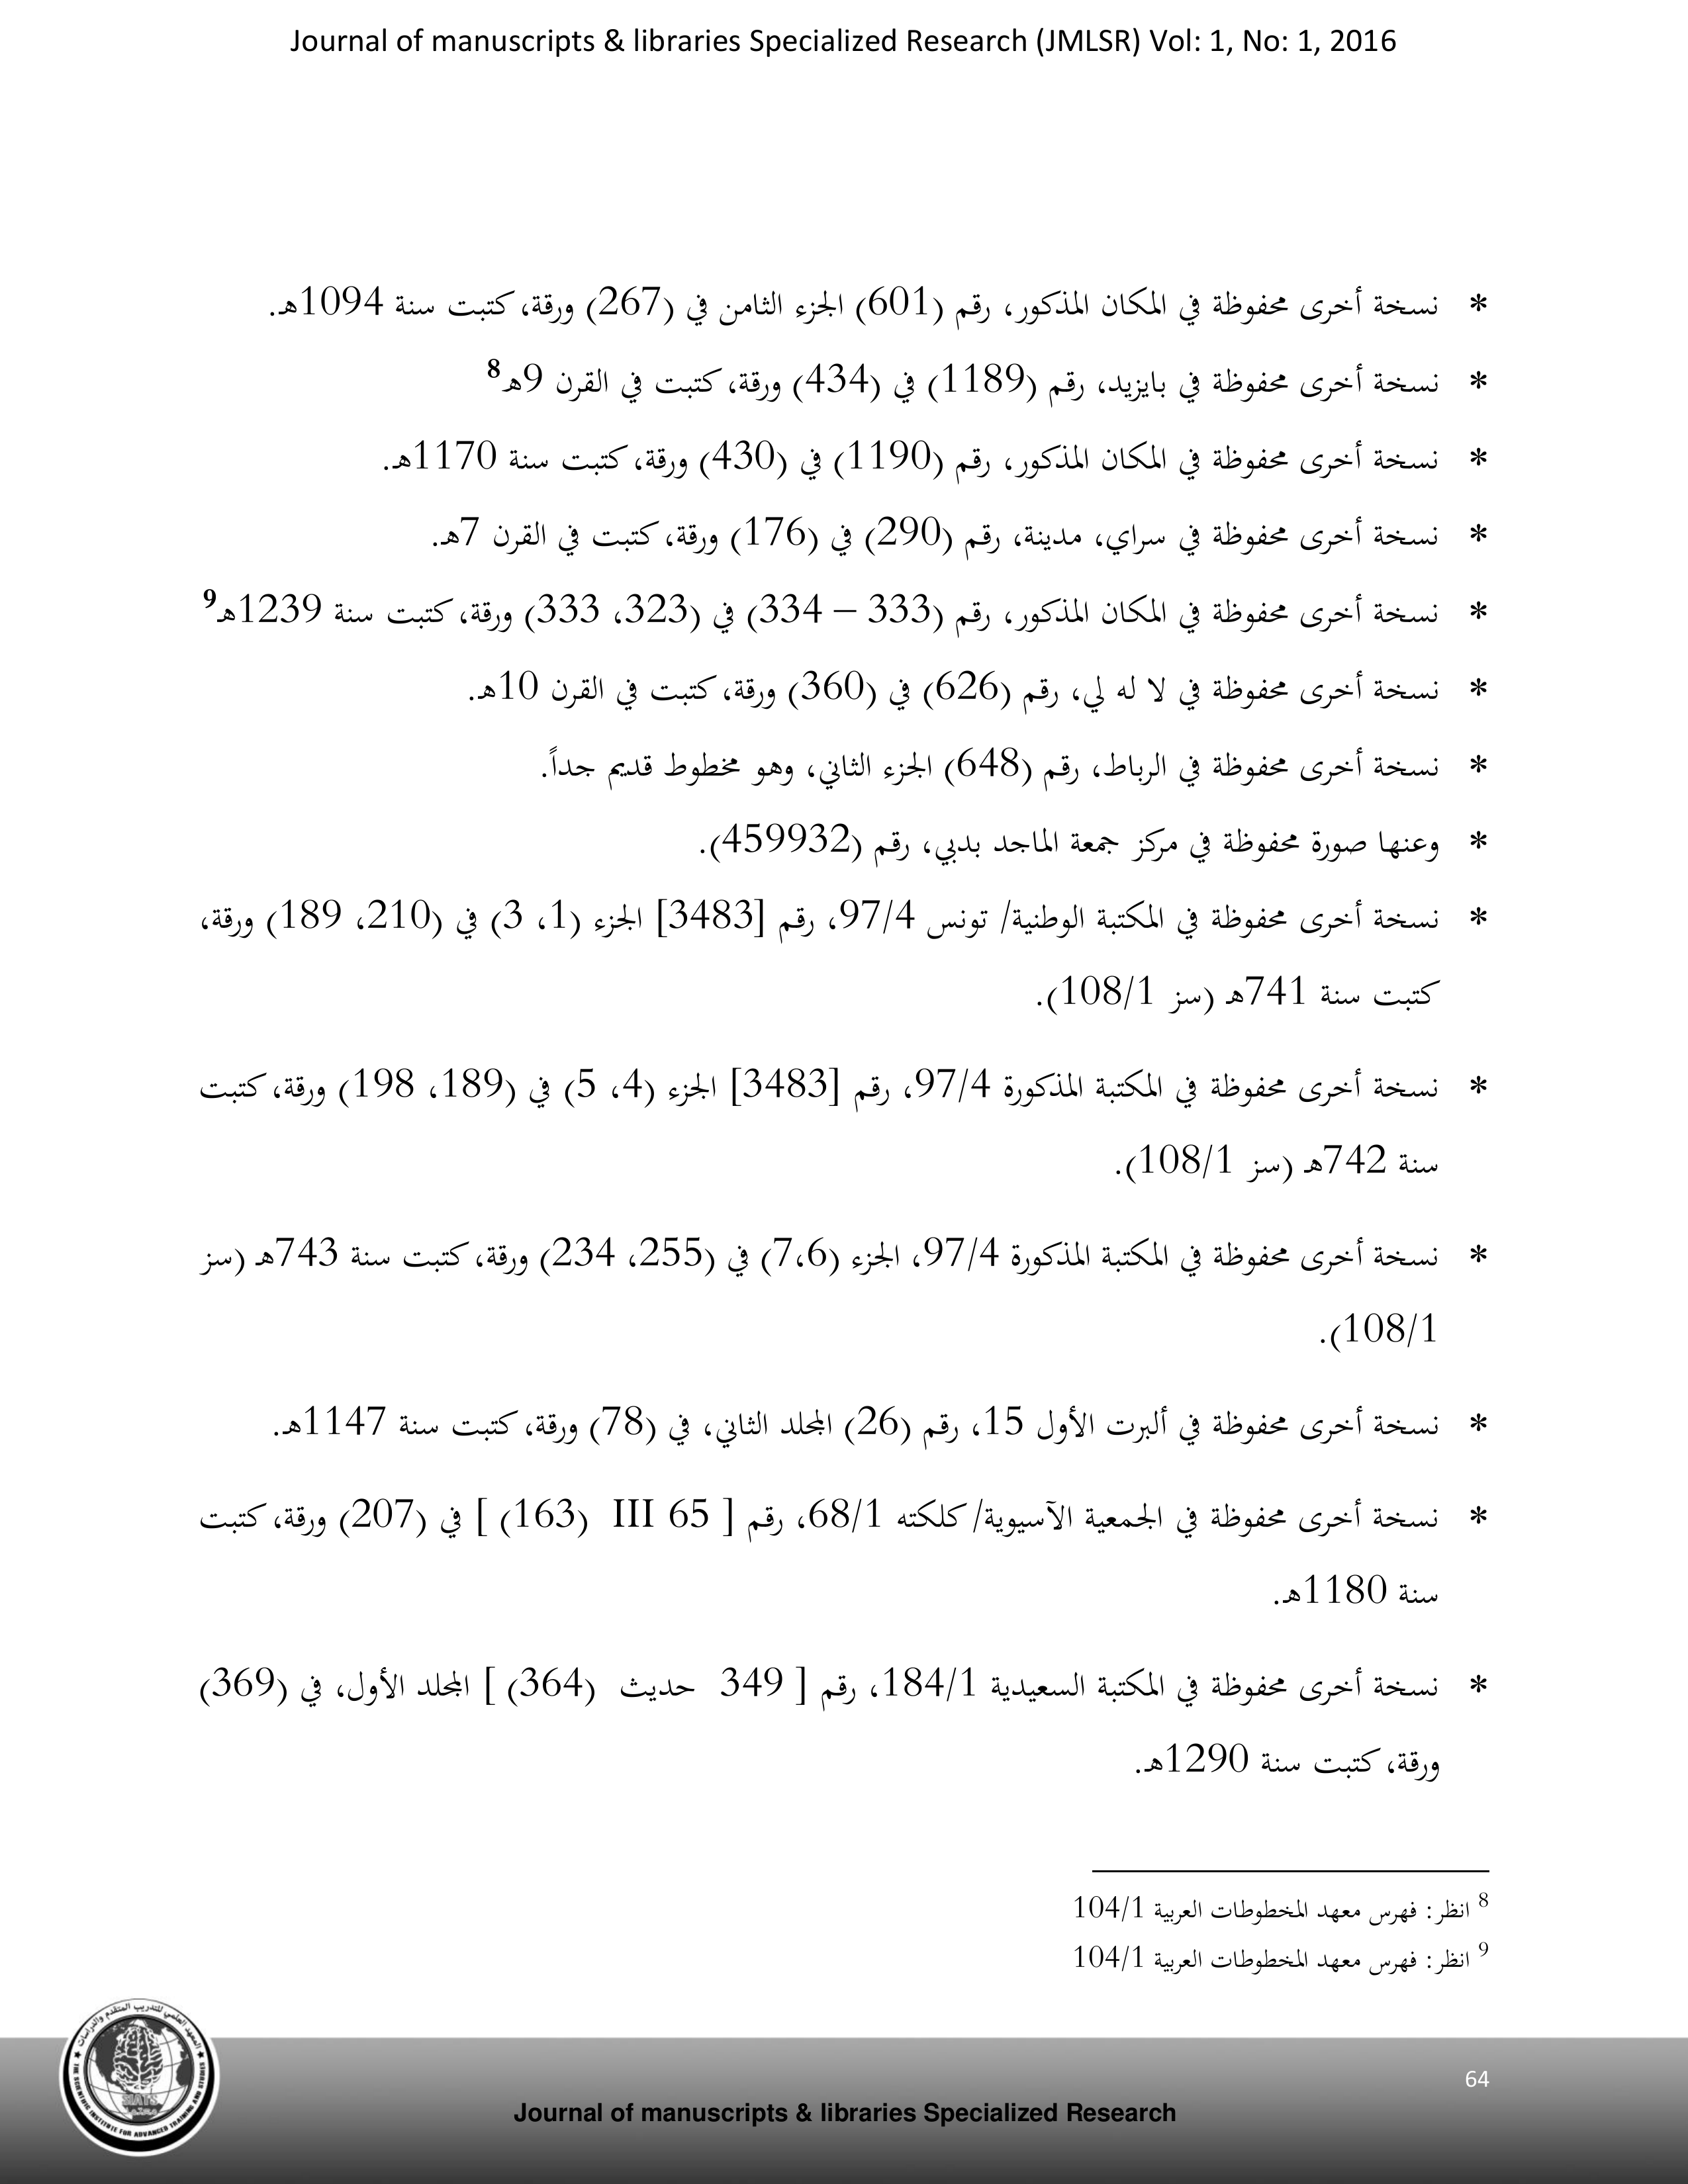 Journal of manuscripts & libraries Specialized Research (JMLSR) Vol: 1, No: 1, 2016
* نسخة أخرى محفوظة في المكان المذكور، رقم (601) الجزء الثامن في (267) ورقة، كتبت سنة 1094هـ.
* نسخة أخرى محفوظة في بايزيد، رقم (1189) في (434) ورقة، كتبت في القرن 9هـ8
* نسخة أخرى محفوظة في المكان المذكور، رقم (1190) في (430) ورقة، كتبت سنة 1170هـ.
* نسخة أخرى محفوظة في سراي، مدينة، رقم (290) في (176) ورقة، كتبت في القرن 7هـ.
* نسخة أخرى محفوظة في المكان المذكور، رقم (333 – 334) في (323، 333) ورقة، كتبت سنة 1239هـ9
* نسخة أخرى محفوظة في لا له لي، رقم (626) في (360) ورقة، كتبت في القرن 10هـ.
* نسخة أخرى محفوظة في الرباط، رقم (648) الجزء الثاني، وهو مخطوط قديم جداً.
* وعنها صورة محفوظة في مركز جمعة الماجد بدبي، رقم (459932).
* نسخة أخرى محفوظة في المكتبة الوطنية/ تونس 97/4، رقم [3483] الجزء (1، 3) في (210، 189) ورقة،
كتبت سنة 741هـ (سز 108/1).
* نسخة أخرى محفوظة في المكتبة المذكورة 97/4، رقم [3483] الجزء (4، 5) في (189، 198) ورقة، كتبت
سنة 742هـ (سز 108/1).
* نسخة أخرى محفوظة في المكتبة المذكورة 97/4، الجزء (7،6) في (255، 234) ورقة، كتبت سنة 743هـ (سز
108/1).
* نسخة أخرى محفوظة في ألبرت الأول 15، رقم (26) المجلد الثاني، في (78) ورقة، كتبت سنة 1147هـ.
* نسخة أخرى محفوظة في الجمعية الآسيوية/ كلكته 68/1، رقم [ 65 III (163) ] في (207) ورقة، كتبت
سنة 1180هـ.
* نسخة أخرى محفوظة في المكتبة السعيدية 184/1، رقم [ 349 حديث (364) ] المجلد الأول، في (369)
ورقة، كتبت سنة 1290هـ.
8 انظر: فهرس معهد المخطوطات العربية 104/1
9 انظر: فهرس معهد المخطوطات العربية 104/1
المعهد العلمي للتدريب المتقدم والدراسات
THE SCIENTIFIC INSTITUTE FOR ADVANCED TRAINING AND STUDIES
SIATS
64
Journal of manuscripts & libraries Specialized Research